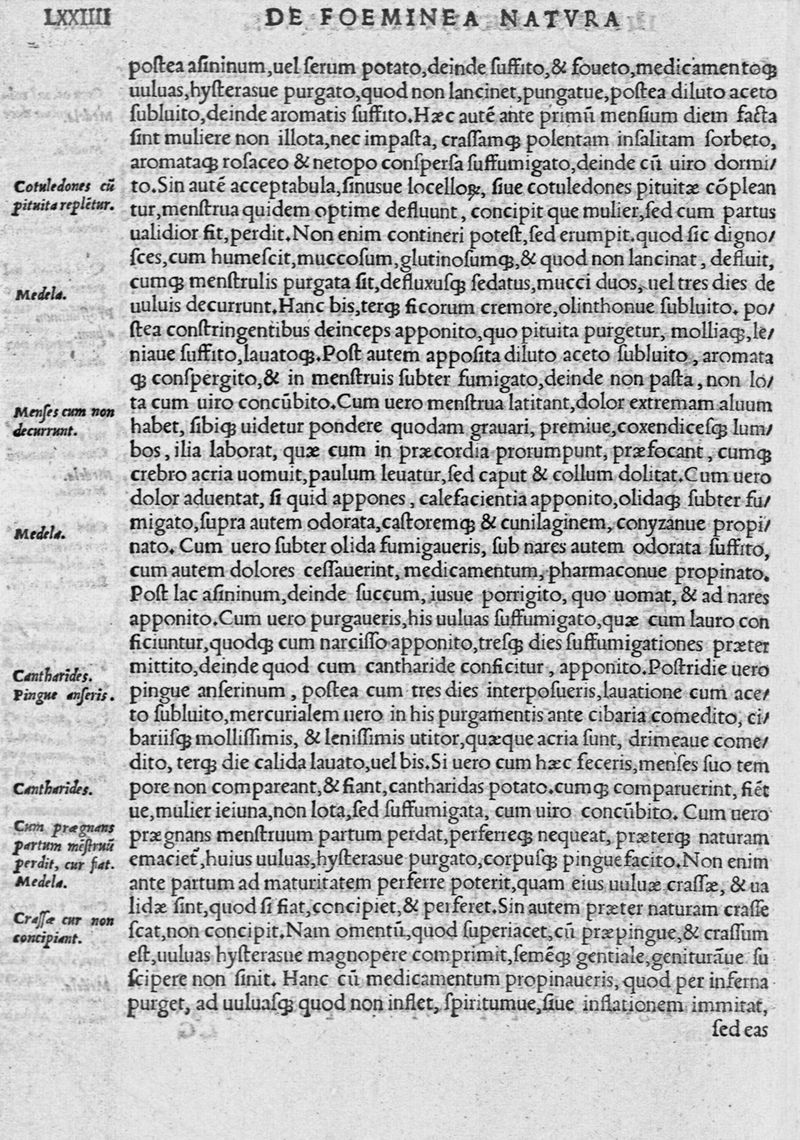 LXXIIII DE FOEMINEA NATVRA
poſtea aſininum,uel ſerum potato,deinde ſuffito,& foueto,medicamentoq́ꝫ
uuluas,hyſterasue purgato,quod non lancinet,pungatue,poſtea diluto aceto
ſubluito,deinde aromatis ſuffito.Hæc autē ante primū menſium diem facta
ſint muliere non illota,nec impaſta, craſſamqꝫ polentam inſalitam ſorbeto,
aromataqꝫ roſaceo & netopo conſperſa ſuffumigato,deinde cū uiro dormi/
Cotuledones cū
pituita replētur.
to.Sin autē acceptabula,ſinusue locelloꝝ, ſiue cotuledones pituitæ cōplean
tur,menſtrua quidem optime defluunt, concipit que mulier,ſed cum partus
ualidior fit,perdit.Non enim contineri poteſt,ſed erumpit.quod ſic digno/
ſces,cum humeſcit,muccoſum,glutinoſumqꝫ,& quod non lancinat, defluit,
cumqꝫ menſtrulis purgata ſit,defluxuſqꝫ ſedatus,mucci duos, uel tres dies de
Medela.
uuluis decurrunt.Hanc bis,terqꝫ ficorum cremore,olinthonue ſubluito. po/
ſtea conſtringentibus deinceps apponito,quo pituita purgetur, molliaqꝫ,le/
niaue ſuffito,lauatoqꝫ.Poſt autem appoſita diluto aceto ſubluito, aromata
qꝫ conſpergito,& in menſtruis ſubter fumigato,deinde non paſta, non lo/
Menſes cum non
decurrunt.
ta cum uiro concūbito.Cum uero menſtrua latitant,dolor extremam aluum
habet, ſibiqꝫ uidetur pondere quodam grauari, premiue,coxendiceſqꝫ lum/
bos, ilia laborat, quæ cum in præcordia prorumpunt, præfocant, cumqꝫ
crebro acria uomuit,paulum leuatur,ſed caput & collum dolitat.Cum uero
dolor aduentat, ſi quid appones, calefacientia apponito,olidaqꝫ ſubter fu/
migato,ſupra autem odorata,caſtoremqꝫ & cunilaginem, conyzanue propi/
Medela.
nato. Cum uero ſubter olida fumigaueris, ſub nares autem odorata ſuffito,
cum autem dolores ceſſauerint, medicamentum, pharmaconue propinato.
Poſt lac aſininum,deinde ſuccum, iusue porrigito, quo uomat, & ad nares
apponito.Cum uero purgaueris,his uuluas ſuffumigato,quæ cum lauro con
ficiuntur,quodqꝫ cum narciſſo apponito,treſqꝫ dies ſuffumigationes præter
mittito,deinde quod cum cantharide conficitur, apponito.Poſtridie uero
Cantharides.
Pingue anſeris.
pingue anſerinum, poſtea cum tres dies interpoſueris,lauatione cum ace/
to ſubluito,mercurialem uero in his purgamentis ante cibaria comedito, ci/
bariiſqꝫ molliſſimis, & leniſſimis utitor,quæque acria ſunt, drimeaue come/
dito, terqꝫ die calida lauato,uel bis.Si uero cum hæc feceris,menſes ſuo tem
Cantharides.
pore non compareant,& fiant,cantharidas potato.cumqꝫ comparuerint, fiēt
ue,mulier ieiuna,non lota,ſed ſuffumigata, cum uiro concūbito. Cum uero
Cum prægnans
partum mēſtruū
perdit, cur fiat.
Medela.
prægnans menſtruum partum perdat,perferreqꝫ nequeat, præterqꝫ naturam
emaciet,huius uuluas,hyſterasue purgato,corpuſqꝫ pinguefacito.Non enim
ante partum ad maturitatem perferre poterit,quam eius uuluæ craſſæ, & ua
lidæ ſint,quod ſi fiat,concipiet,& perferet.Sin autem præter naturam craſſe
Craſſæ cur non
concipiant.
ſcat,non concipit.Nam omentū,quod ſuperiacet,cū præpingue,& craſſum
eſt,uuluas hyſterasue magnopere comprimit,ſemēqꝫ gentiale,geniturāue ſu
ſcipere non ſinit. Hanc cū medicamentum propinaueris, quod per inferna
purget, ad uuluaſqꝫ quod non inflet, ſpiritumue,ſiue inflationem immitat,
ſed eas